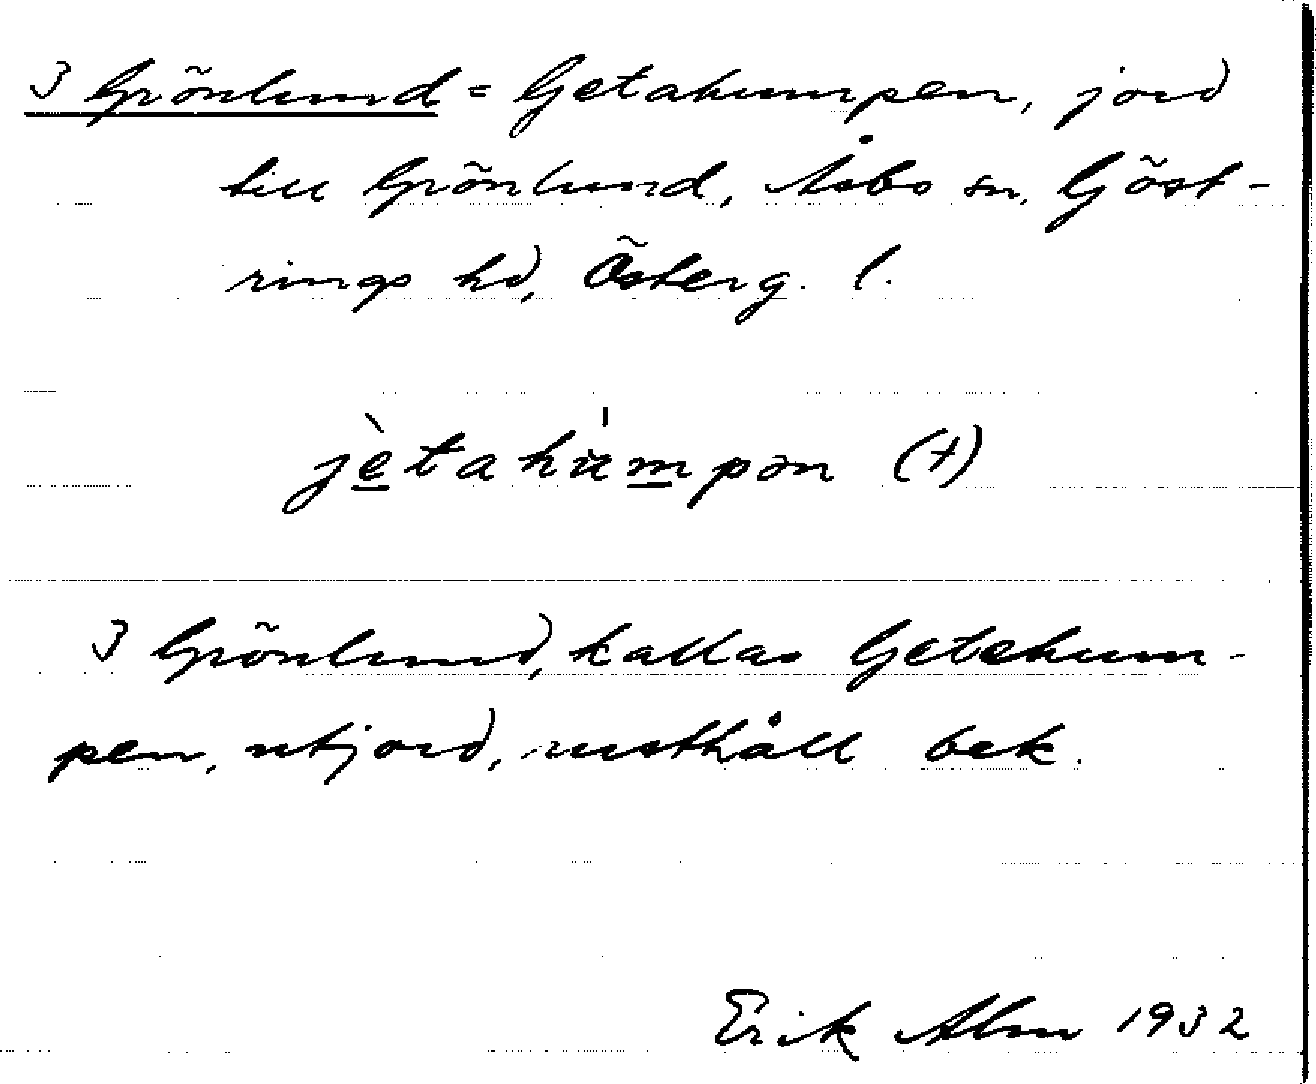 3 Grönlund = Getahumpen, jord
till Grönlund, Åsbo sn, Göst-
rings hd, Österg. l.
jètahu̇mpən (+)
3 Grönlund, kallas Getehum-
pen, utjord, rusthåll bek.
Erik Alm 1932